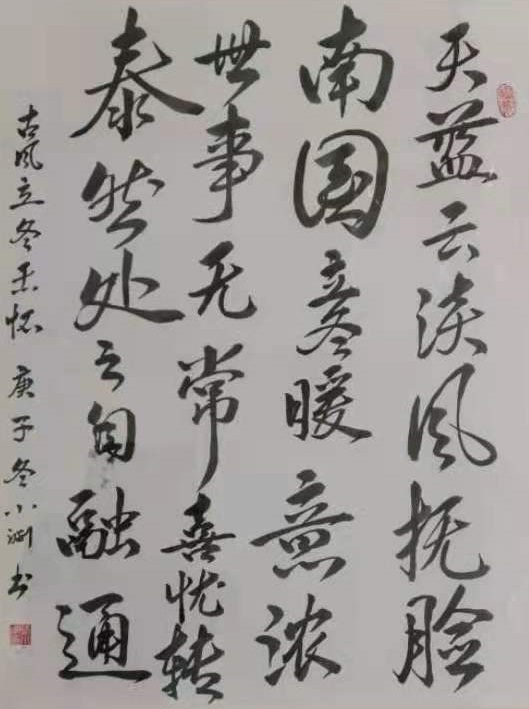 天蓝云淡风抚脸
南国立冬暖意浓
世事无常喜忧转
泰然处之自融通
古风立冬感怀 庚子冬小渊书